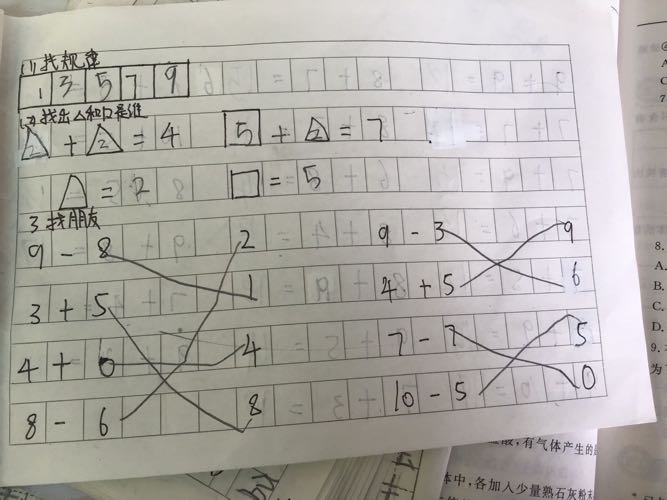 (1)找规律
1 3 5 7 9
(2)找出△和口是谁
2 + 2 = 4 5 + 2 = 7
△ = 2 □ = 5
3 找朋友
9 - 8 2 9 - 3 9
3 + 5 1 4 + 5 6
4 + 0 4 7 - 7 5
8 - 6 8 10 - 5 0
8.
A.
B.
C.
D.
9.
为
有气体产生的
中,各加入少量熟石灰粉末